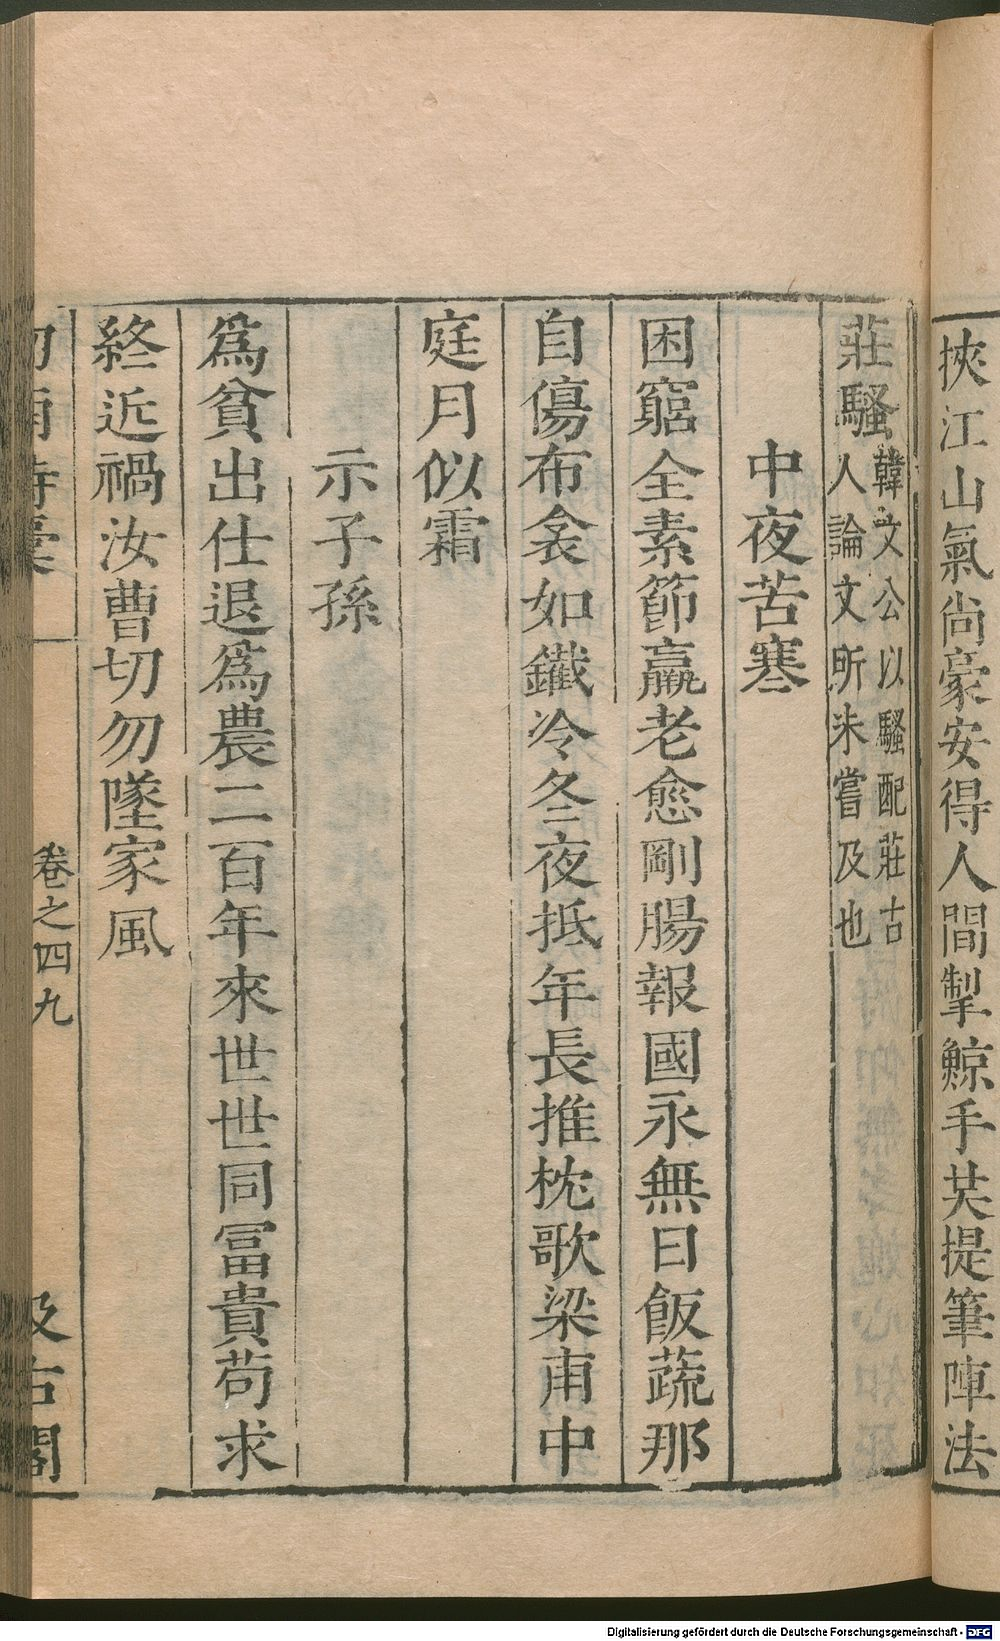 挾江山氣尚豪安得人間掣鯨手共提筆陣法
莊騷韓文公以騷配莊古
人論文所未嘗及也
中夜苦寒
困窮全素節羸老愈剛腸報國永無日飯蔬那
自傷布衾如鐵冷冬夜抵年長推枕歌梁甫中
庭月似霜
示子孫
爲貧出仕退爲農二百年來世世同冨貴苟求
終近禍汝曹切勿墜家風
卷之四九
汲古閣
Digitalisierung gefördert durch die Deutsche Forschungsgemeinschaft - DFG